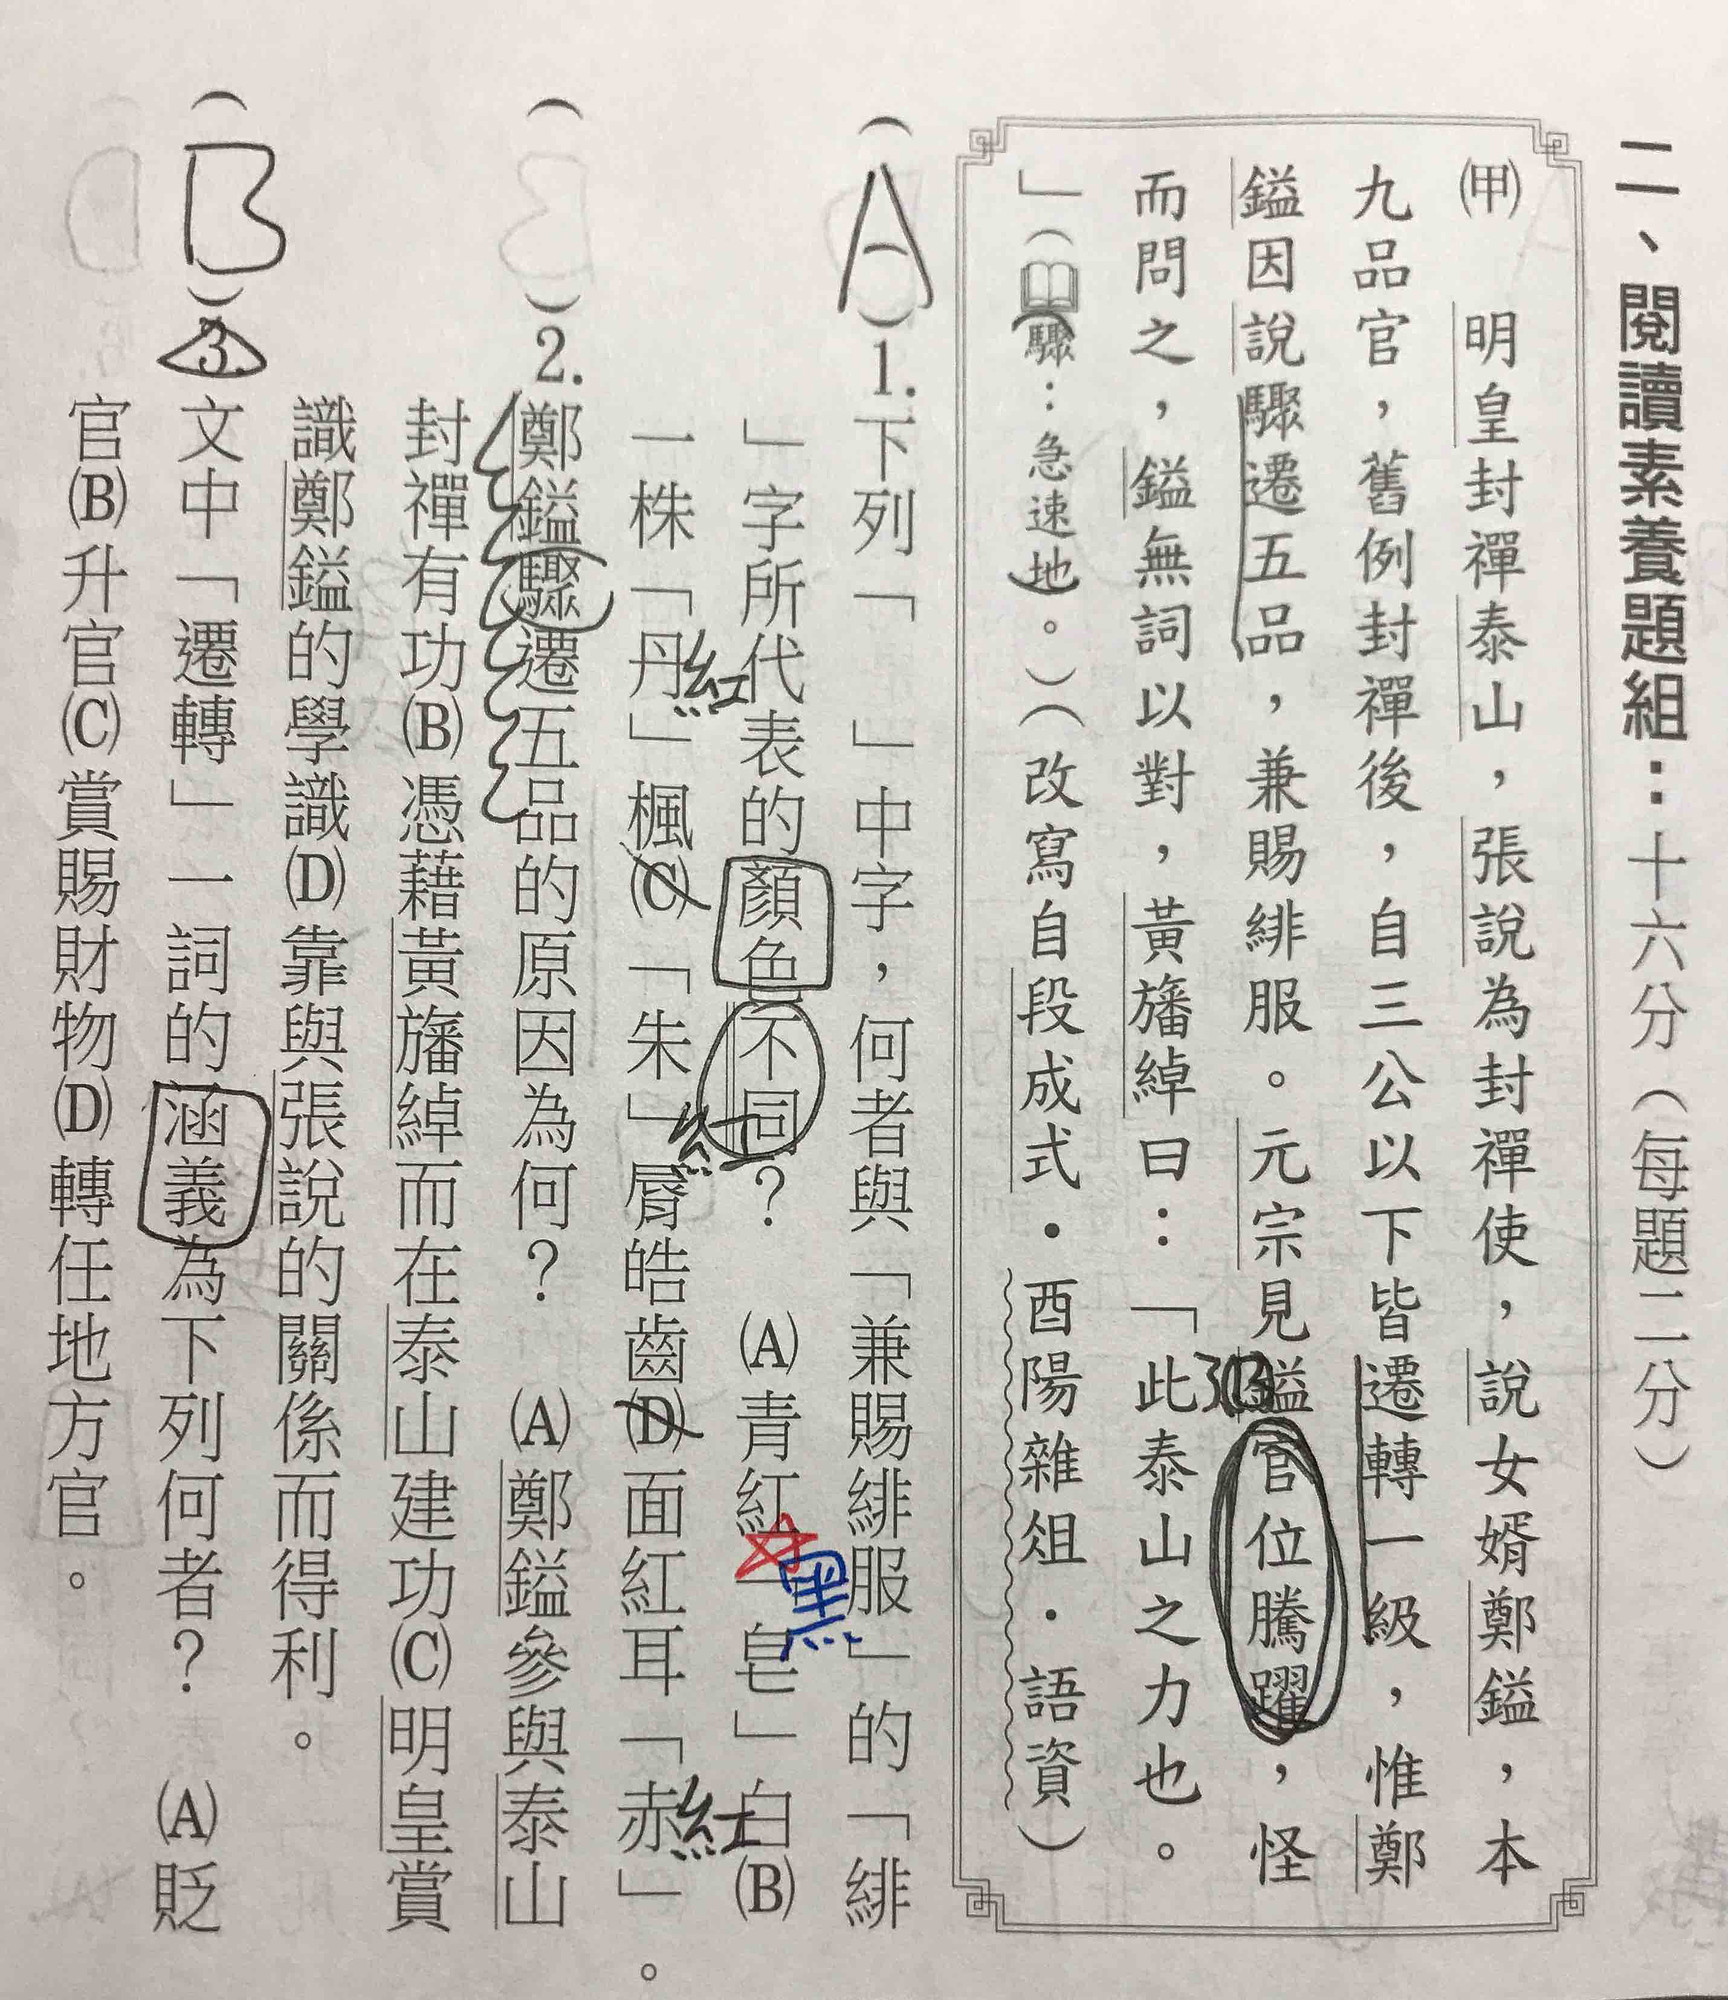 二、閱讀素養題組：十六分（每題二分）
㈙　明皇封禪泰山，張說為封禪使，說女婿鄭鎰，本
九品官，舊例封禪後，自三公以下皆遷轉一級，惟鄭
鎰因說驟遷五品，兼賜緋服。元宗見鎰官位騰躍，怪
而問之，鎰無詞以對，黃旛綽曰：「此泰山之力也。
」（驟：急速地。）（改寫自段成式‧酉陽雜俎‧語資）
（A）1.下列「　」中字，何者與「兼賜緋服」的「緋
」字所代表的顏色不同？　(A)青紅「皂」白(B)
黑
一株「丹」楓(C)「朱」脣皓齒(D)面紅耳「赤」。
紅
紅
紅
（　）2.鄭鎰驟遷五品的原因為何？　(A)鄭鎰參與泰山
封禪有功(B)憑藉黃旛綽而在泰山建功(C)明皇賞
識鄭鎰的學識(D)靠與張說的關係而得利。
（B）3.文中「遷轉」一詞的涵義為下列何者？　(A)貶
官(B)升官(C)賞賜財物(D)轉任地方官。